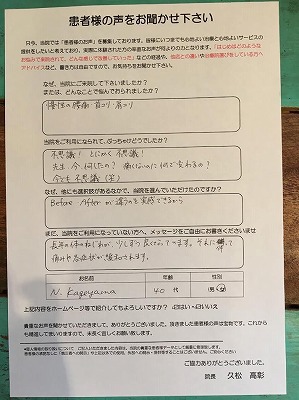 患者様の声をお聞かせ下さい
只今、当院では「患者様のお声」を募集しております。皆様にいつまでも心地よい治療と心地よいサービスの
提供をしたいと考えており、実際に体験された方の率直なお声が何よりの力となります。「はじめはどのような
お悩みで来院されて、どんな感じで改善していった」などの経過や、他院との違いや治療院選びをしている方へ
アドバイスなど、書き方は自由ですので、お気持ちをお聞かせ下さい。
なぜ、当院にご来院して下さいましたか?
または、どんなことで悩んでおられましたか?
慢性の腰痛・首コリ・肩コリ
当院をご利用になられて、ぶっちゃけどうでしたか?
不思議! とにかく不思議!
先生、今、何したの? 痛くないのに何で変わるの?
今も不思議(笑)
なぜ、他にも選択肢があるなかで、当院を選んでいただけたのですか?
Before Afterが違うを実感できるから
まだ、当院をご利用になっていない方へ、メッセージをご自由にお書きくださいませ
長年の体のねじれが、少しずつ良くなってます。それに伴って
痛みや各症状が緩和されます。
お名前
年齢
性別
N. Kageyama
40 代
男・女
上記内容をホームページ等で紹介してもよろしいですか? はい・いいえ
貴重なお声を聞かせていただきまして、ありがとうございました。頂きました患者様の声は宝物です。これから
も精進して参りますので、末長く宜しくお願い致します。
ご協力ありがとうございました。
院長 久松 高彰